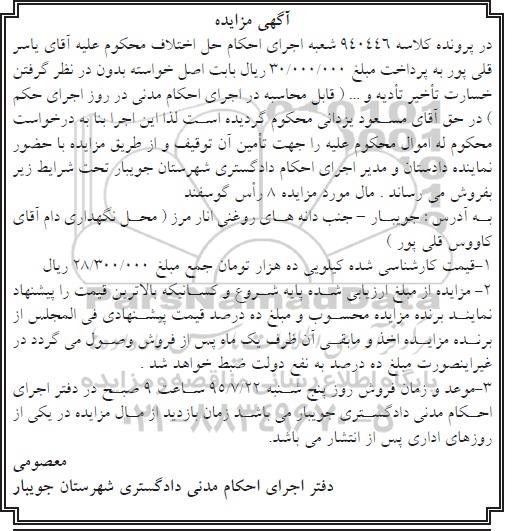 آگهی مزایده
در پرونده کلاسه ۹۴۰۴۴۶ شعبه اجرای احکام حل اختلاف محکوم علیه آقای یاسر
قلی پور به پرداخت مبلغ ۳۰/۰۰۰/۰۰۰ ریال بابت اصل خواسته بدون در نظر گرفتن
خسارت تأخیر تأدیه و ... ( قابل محاسبه در اجرای احکام مدنی در روز اجرای حکم
) در حق آقای مسعود یزدانی محکوم گردیده است لذا این اجرا بنا به درخواست
محکوم له اموال محکوم علیه را جهت تأمین آن توقیف و از طریق مزایده با حضور
نماینده دادستان و مدیر اجرای احکام دادگستری شهرستان جویبار تحت شرایط زیر
بفروش می رساند . مال مورد مزایده ۸ رأس گوسفند
به آدرس : جویبار – جنب دانه های روغنی انار مرز ( محل نگهداری دام آقای
کاووس قلی پور )
۱-قیمت کارشناسی شده کیلویی ده هزار تومان جمع مبلغ ۲۸/۳۰۰/۰۰۰ ریال
۲- مزایده از مبلغ ارزیابی شده پایه شروع و کسانیکه بالاترین قیمت را پیشنهاد
نمایند برنده مزایده محسوب و مبلغ ده درصد قیمت پیشنهادی فی المجلس از
برنده مزایده اخذ و مابقی آن ظرف یک ماه پس از فروش وصول می گردد در
غیراینصورت مبلغ ده درصد به نفع دولت ضبط خواهد شد .
۳-موعد و زمان فروش روز پنج شنبه ۹۵/۷/۲۲ ساعت ۹ صبح در دفتر اجرای
احکام مدنی دادگستری جویبار می باشد زمان بازدید از مال مزایده در یکی از
روزهای اداری پس از انتشار می باشد.
معصومی
دفتر اجرای احکام مدنی دادگستری شهرستان جویبار
ParsNamadData
پایگاه اطلاع رسانی مناقصه و مزایده
۰۲۱-۸۸۳۴۹۶۷۰-۵